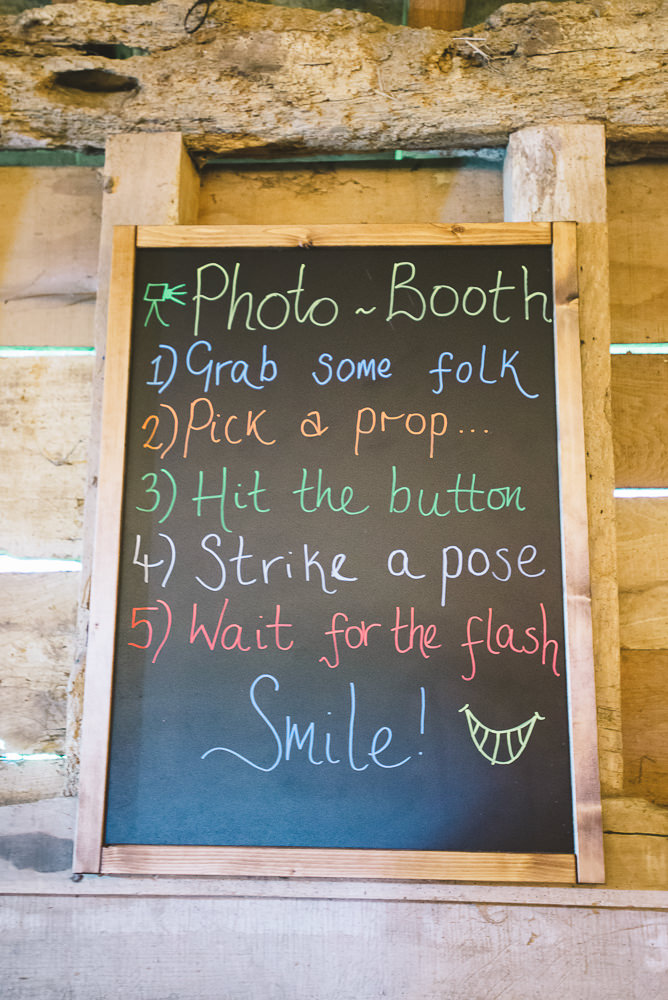 Photo ~ Booth
1) Grab some folk
2) Pick a prop...
3) Hit the button
4) Strike a pose
5) Wait for the flash
Smile!